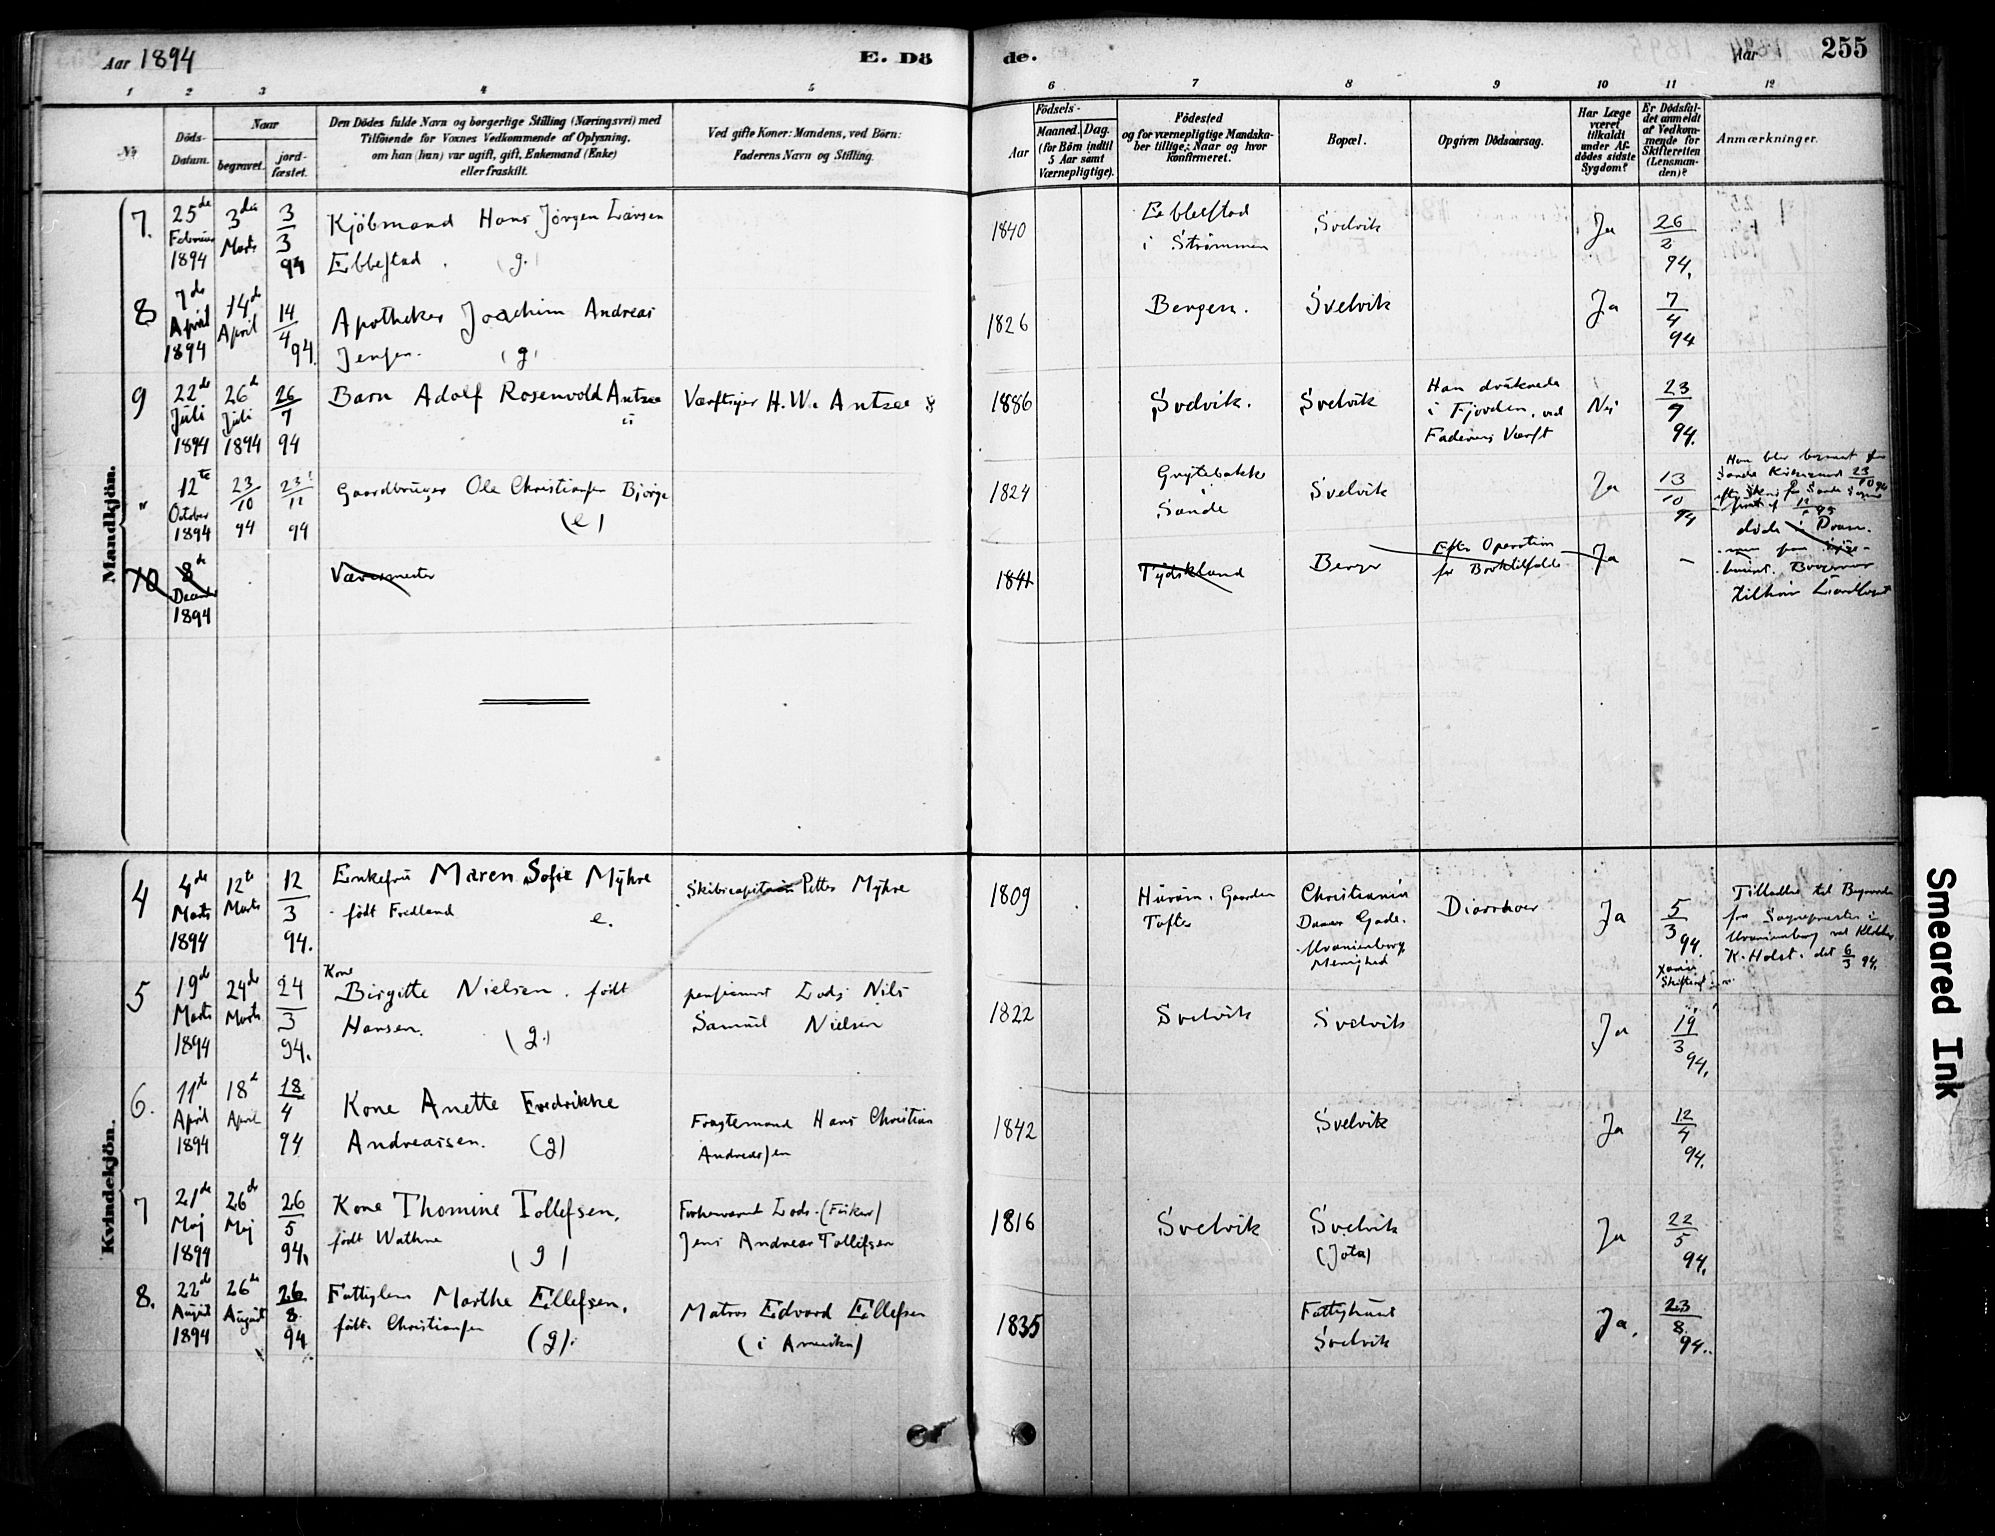 Aar 1894
E. Dö
de.
Aar
255
1 2 3 4 5 6 7 8 9 10 11 12
No
Döds-Datum.
Naar
begravet.
jord-fæstet.
Den Dödes fulde Navn og borgerlige Stilling (Næringsvei) med
Tilföiende for Voxnes Vedkommende af Oplysning,
om han (hun) var ugift, gift, Enkemand (Enke)
eller fraskilt.
Ved gifte Koner: Mandens, ved Börn:
Faderens Navn og Stilling.
Födsels-
Aar
Maaned. Dag.
(for Börn indtil
5 Aar samt
Værnepligtige).
Födested
og for værnepligtige Mandska-
ber tillige: Naar og hvor
konfirmeret.
Bopæl.
Opgiven Dödsaarsag.
Har Læge
været
tilkaldt
under Af-
dödes sidste
Sygdom?
Er Dödsfal-
det anmeldt
af Vedkom-
mende for
Skifteretten
(Lensman-
den)?
Anmærkninger.
Mandkjön.
7. 25de Februar 1894 3die Marts 3/3 94 Kjöbmand Hans Jörgen Larsen
Ebbestad. (g.) 1840 Ebbestad
i Strömmen Svelvik Ja 26/2 94.
8 7de April 1894 14de April 14/4 94. Apotheker Joachim Andreas
Jensen. (g) 1826 Bergen. Svelvik Ja 7/4 94
9 22de Juli 1894 26de Juli 1894 26/7 94 Barn Adolf Rosenvold Antzee
Værftseier H. W. Antzee 1886 Svelvik. Svelvik Han druknede
i Fjorden, ved
Faderens Værft Nei 23/7 94.
" 12te October 1894 23/10 94 23/11 94 Gaardbruger Ole Christiansen Bjørge
(e) 1824
Sande Svelvik Ja 13/10 94
Han blev
10 8de December 1894 Væversmester 1841 Tydskland Berger Efter Operation
for Ja -
Kvindekjön.
4 4de Marts 1894 12te Marts 12/3 94. Enkefru Maren Sofie Myhre
født Fredland e. Skibscapitain Petter Myhre 1809 Hurum, Gaarden
Tofte Christiania
Gade.
Uranienborg
Menighed Diarrhoer Ja 5/3 94. Tilladelse til Begravelse
fra Sognepresten i
Uranienborg ved Klokker
K. Holst. det 6/3 94.
5 19de Marts 1894 24de Marts 24/3 94. Kone
Birgitte Nielsen. født
Hansen. (g.) pensioneret Lods Nils
Samuel Nielsen 1822 Svelvik Svelvik Ja 19/3 94.
6. 11te April 1894 18de April 18/4 94 Kone Anette Fredrikke
Andreassen. (g) Fragtemand Hans Christian
Andreassen 1842 Svelvik Ja 12/4 94.
7 21de Maj 1894 26de Maj 26/5 94. Kone Thomine Tollefsen,
født Wathne (g) Forhenværende Lods (Fisker)
Jens Andreas Tollefsen 1816 Svelvik Svelvik
(Jota) Ja 22/5 94.
8. 22de August 1894 26de August 26/8 94 Fattiglem Marthe Ellefsen,
født Christiansen (g). Matros Edvard Ellefsen
(i Amerika) 1835 Fattighuset
Svelvik Ja. 23/8 94.
Smeared Ink